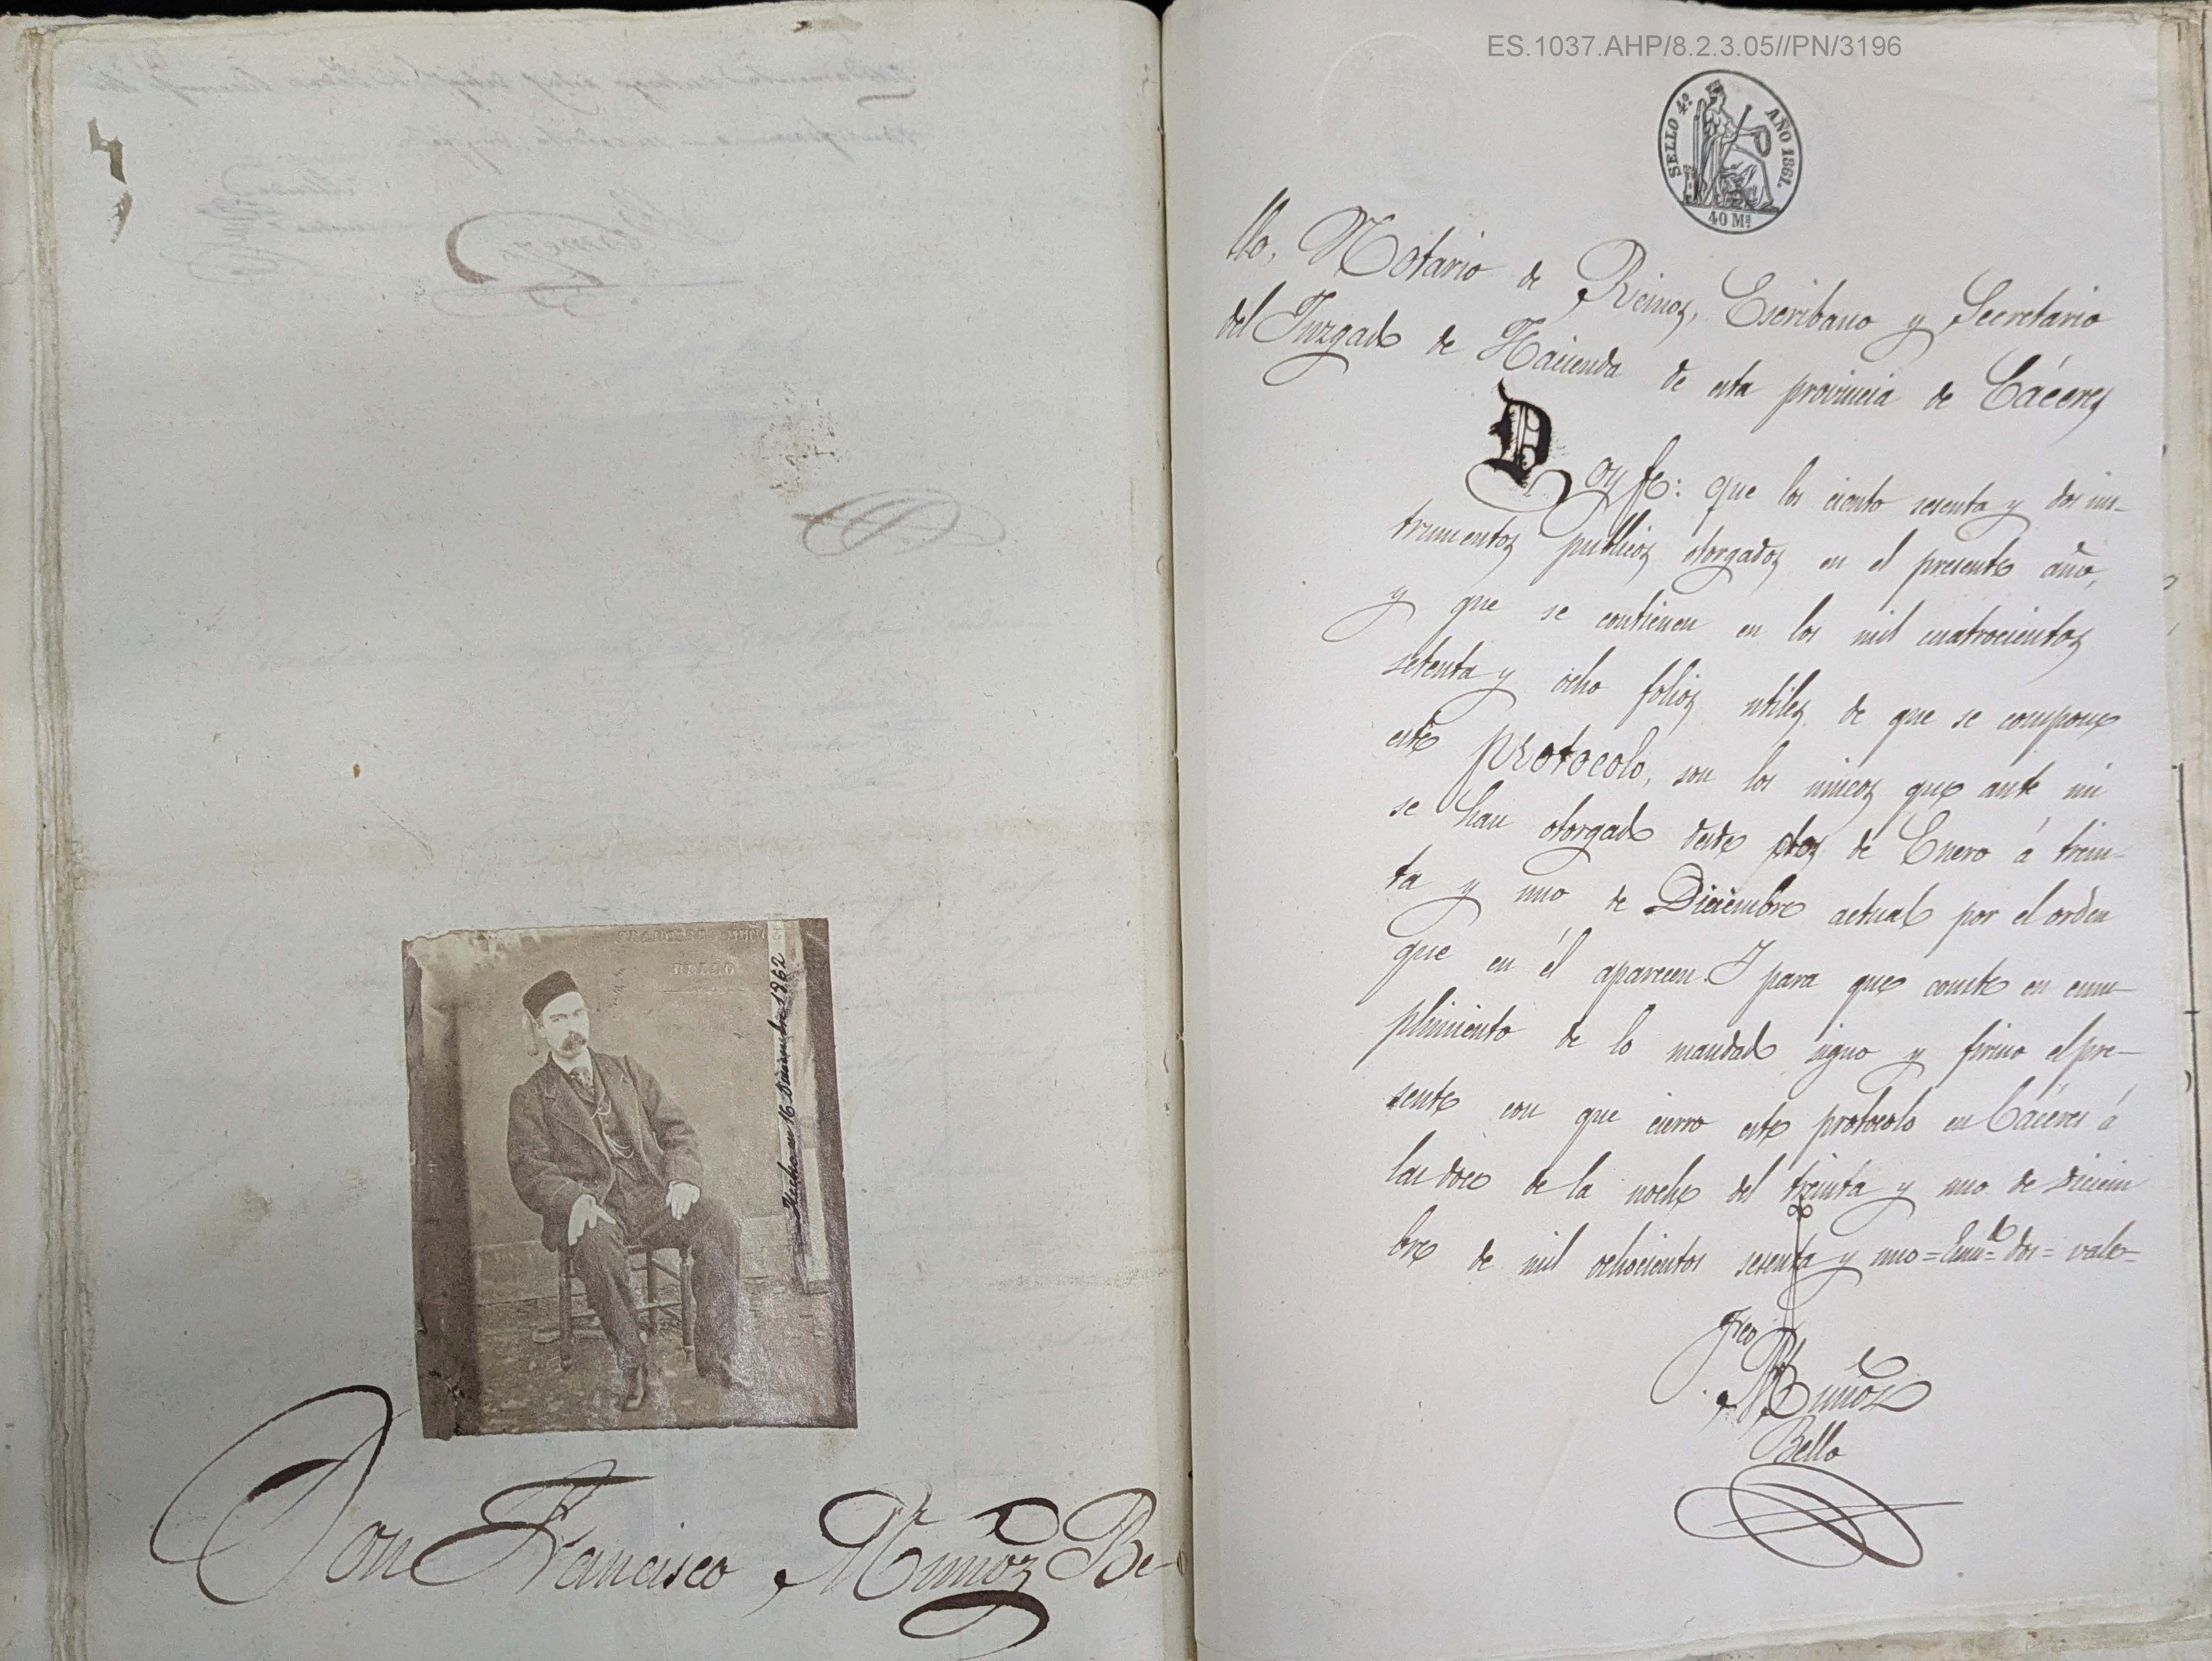 FRANCISCO MUÑOZ
BELLO
Hecho en 16 Diciembre 1862
Don Francisco Muñoz Be-
ES.1037.AHP/8.2.3.05//PN/3196
SELLO 4º AÑO 1861.
40 Ms
llo, Notario de Reinos, Escribano y Secretario
del Juzgado de Hacienda de esta provincia de Cáceres
Doy fe: que los ciento sesenta y dos ins-
trumentos publicos otorgados en el presente año,
y que se contienen en los mil cuatrocientos
setenta y ocho folios utiles de que se compone
este protocolo, son los unicos que ante mi
se han otorgado desde dos de Enero á trein-
ta y uno de Diciembre actual por el orden
que en él aparecen. Y para que conste en cum-
plimiento de lo mandado signo y firmo el pre-
sente con que cierro este protocolo en Cáceres á
las doce de la noche del treinta y uno de diciem
bre de mil ochocientos sesenta y uno = Enmdo = dos = vale =
Frco
Muñoz
Bello